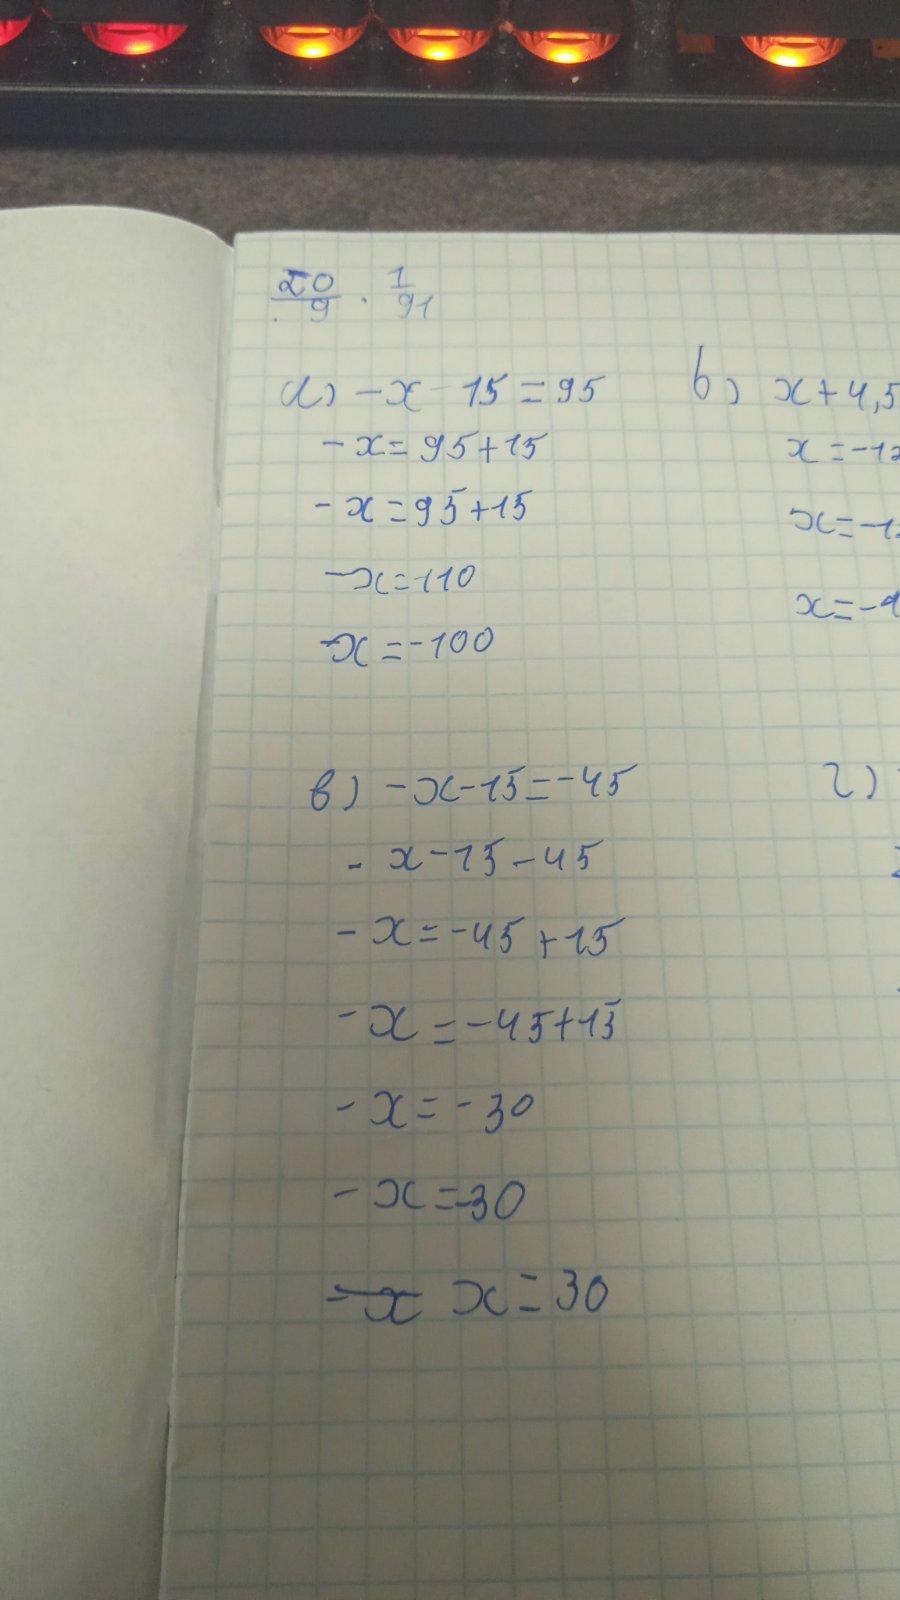 20/9 · 1/91
а) -x - 15 = 95
-x = 95 + 15
-x = 95 + 15
-x = 110
-x = -100
б) x + 4,5
x = -12
x = -1
x = -9
в) -x - 15 = -45
- x - 15 - 45
- x = -45 + 15
- x = -45 + 15
- x = -30
- x = -30
-x x = 30
г)